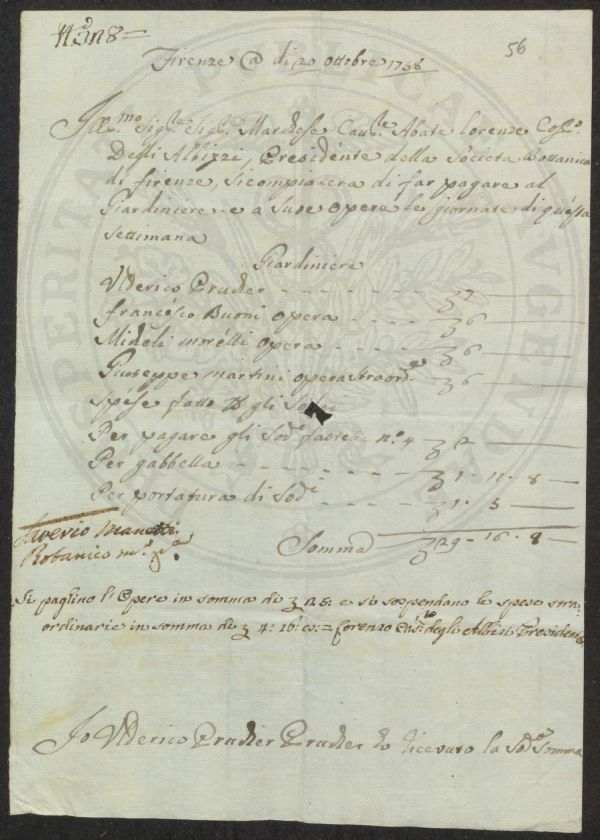 56
Firenze @ di 20 ottobre 1758
Ill.mo Sig.re Sig.re Marchese Cav.re Abate Lorenzo
Degli Albizzi, Presidente della Societa Bottanica
di firenze, si compiacera di far pagare al
Giardiniere e a Suoe opere le giornate di questa
settimana
Giardiniere
Ulderico Prucker - - - - - - 7
francesco Buoni opera - - - - 6
Micheli morelli opera - - - - 6
Giuseppe martini opera straord.a 6
spese fatte gli
Per pagare gli Sod. n.o 4 2
Per gabbella - - - - - - 1 - 11 - 8
Per portatura di Sod.i 1 - 5
Saverio Manetti
Botanico m.o p.a
Somma 29 - 16 - 8
Si paghino l'Opere in somma di 25: e si sospendano le spese stra:
ordinarie in somma di 4: 16: Lorenzo degli Albizi Presidente
Io Ulderico Prucker Prucker ho ricevuto la Sod.a Somma